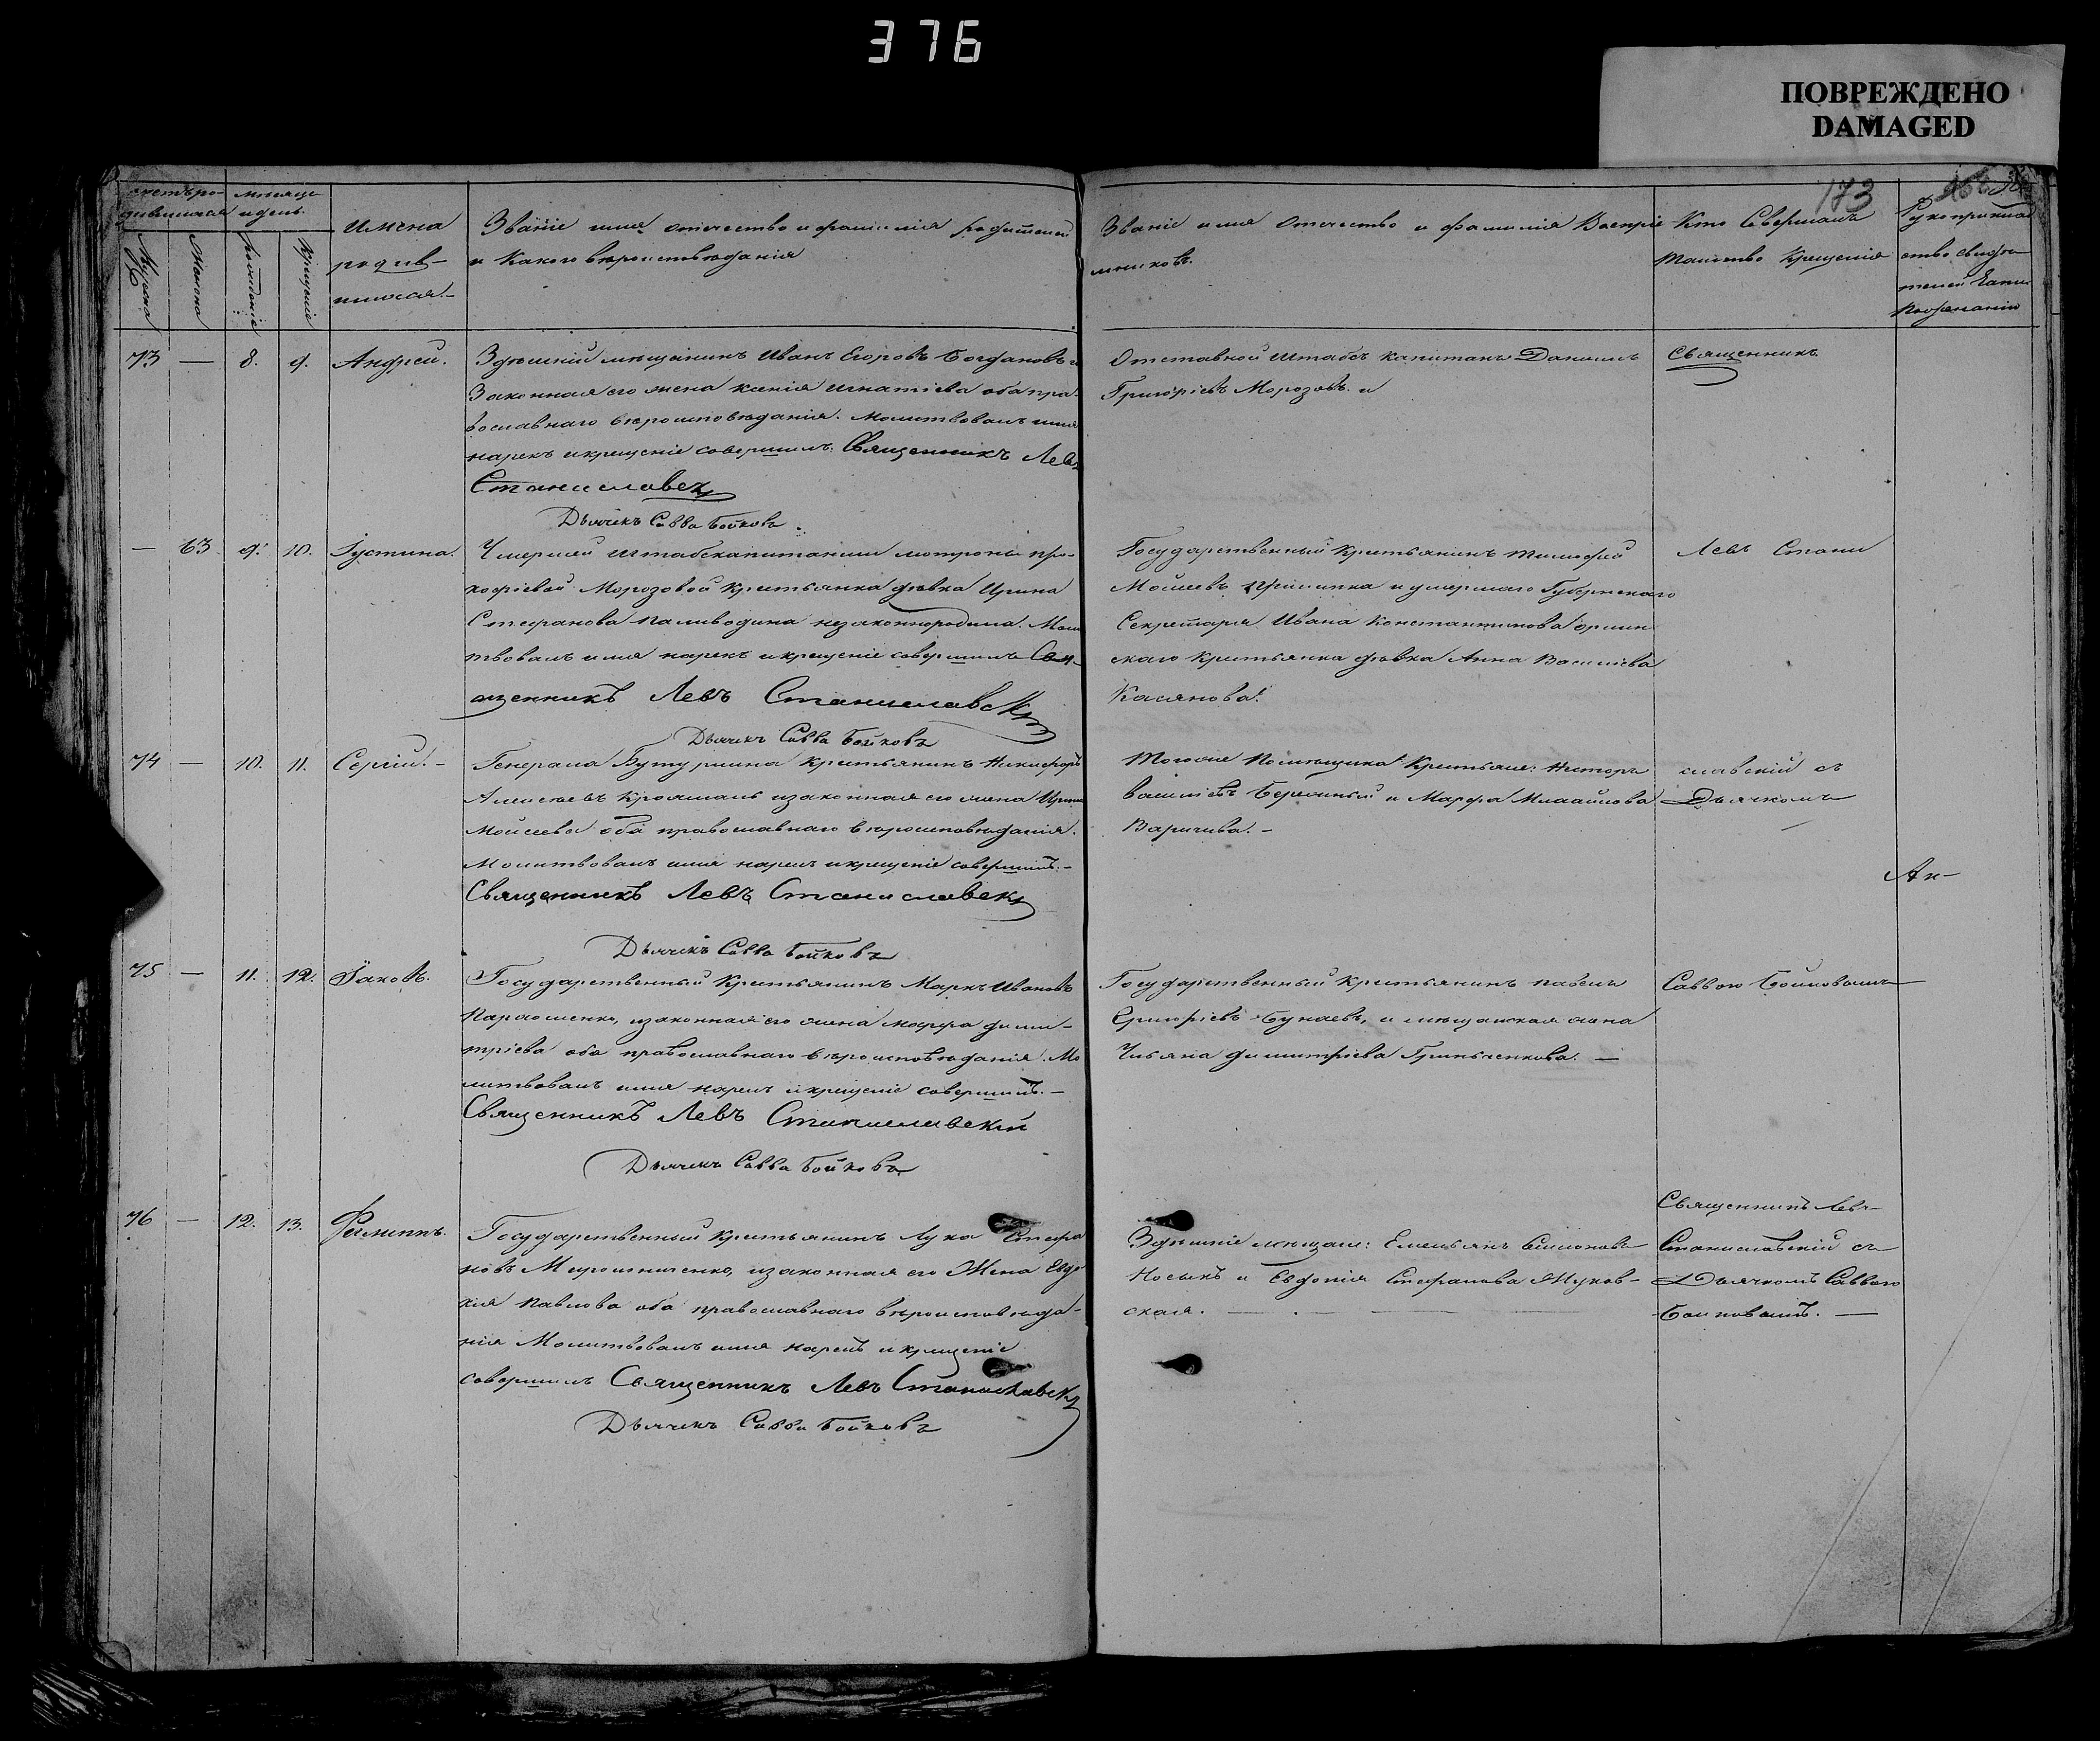 376
ПОВРЕЖДЕНО
DAMAGED
173
Имена
родив-
шихся.-
Званіе имя отечество и фамилія родителей
и Какого вѣроисповѣданія
Мужеска
Женска
Рожденіе
Крещеніе
Званіе имя Отечество и фамилія Воспріе-
мниковъ.
Кто Совершалъ
Таинство Крещенія
Рукоприклад
ство свидѣ
телей
73 — 8. 9. Андрей.
Здѣшній мѣщанинъ Иванъ Егоровъ Богдановъ и
Законная его жена Ксенія Игнатіева оба пра-
вославнаго вѣроисповѣданія. Молитвовалъ имя
нарекъ и крещеніе совершилъ: Священникъ Левъ
Станиславск
Дьячекъ Савва Бойковъ
Отставной Штабсъ Капитанъ Даниилъ
Григоріевъ Морозовъ и
Священникъ
— 63 9. 10. Іустина.
Умершей Штабскапитанши Мотроны Про-
кофіевой Морозовой крестьянка дѣвка Ирина
Стефанова Паливодина незаконнородила. Моли
твовалъ имя нарекъ и крещеніе совершилъ Свя-
щенникъ Левъ Станиславск
Дьячекъ Савва Бойковъ
Государственный Крестьянинъ Тимофей
Моисеевъ и умершаго Губернскаго
Секретаря Ивана Константинова
скаго крестьянка дѣвка Анна Василіева
Касянова.
Левъ Стани
74 — 10. 11. Сергій.-
Генерала Бутурлина Крестьянинъ Никифоръ
Алексѣевъ и законная его жена Ирина
Моисеева оба православнаго вѣроисповѣданія.
Молитвовалъ имя нарекъ и крещеніе совершилъ.-
Священникъ Левъ Станиславск
Дьячекъ Савва Бойковъ
Тогоже Помѣщика Крестьяне: Несторъ
Василіевъ и Марфа Михайлова
славскій съ
Дьячкомъ
Ан-
75 — 11. 12. Іаковъ.
Государственный Крестьянинъ Маркъ Ивановъ
Пархоменко, и законная его жена Марфа Дими-
тріева оба православнаго вѣроисповѣданія. Мо
литвовалъ имя нарекъ и крещеніе совершилъ.-
Священникъ Левъ Станиславскій
Дьячекъ Савва Бойковъ
Государственный Крестьянинъ Павелъ
Григоріевъ Бунаевъ, и мѣщанская жена
Ульяна Димитріева Гринченкова. —
Саввою Бойковымъ
76 — 12. 13. Филиппъ.
Государственный Крестьянинъ Лука Стефа
новъ Мирошниченко, и законная его Жена Евдо
кія Павлова оба православнаго вѣроисповѣда-
нія Молитвовалъ имя нарекъ и крещеніе
совершилъ Священникъ Левъ Станиславск
Дьячекъ Савва Бойковъ
Здѣшніе мѣщане: Емельянъ Симоновъ
Носыкъ и Евдокія Стефанова Жуков-
ская. —
Священникъ Левъ
Станиславскій съ
Дьячкомъ Саввою
Бойковымъ. —